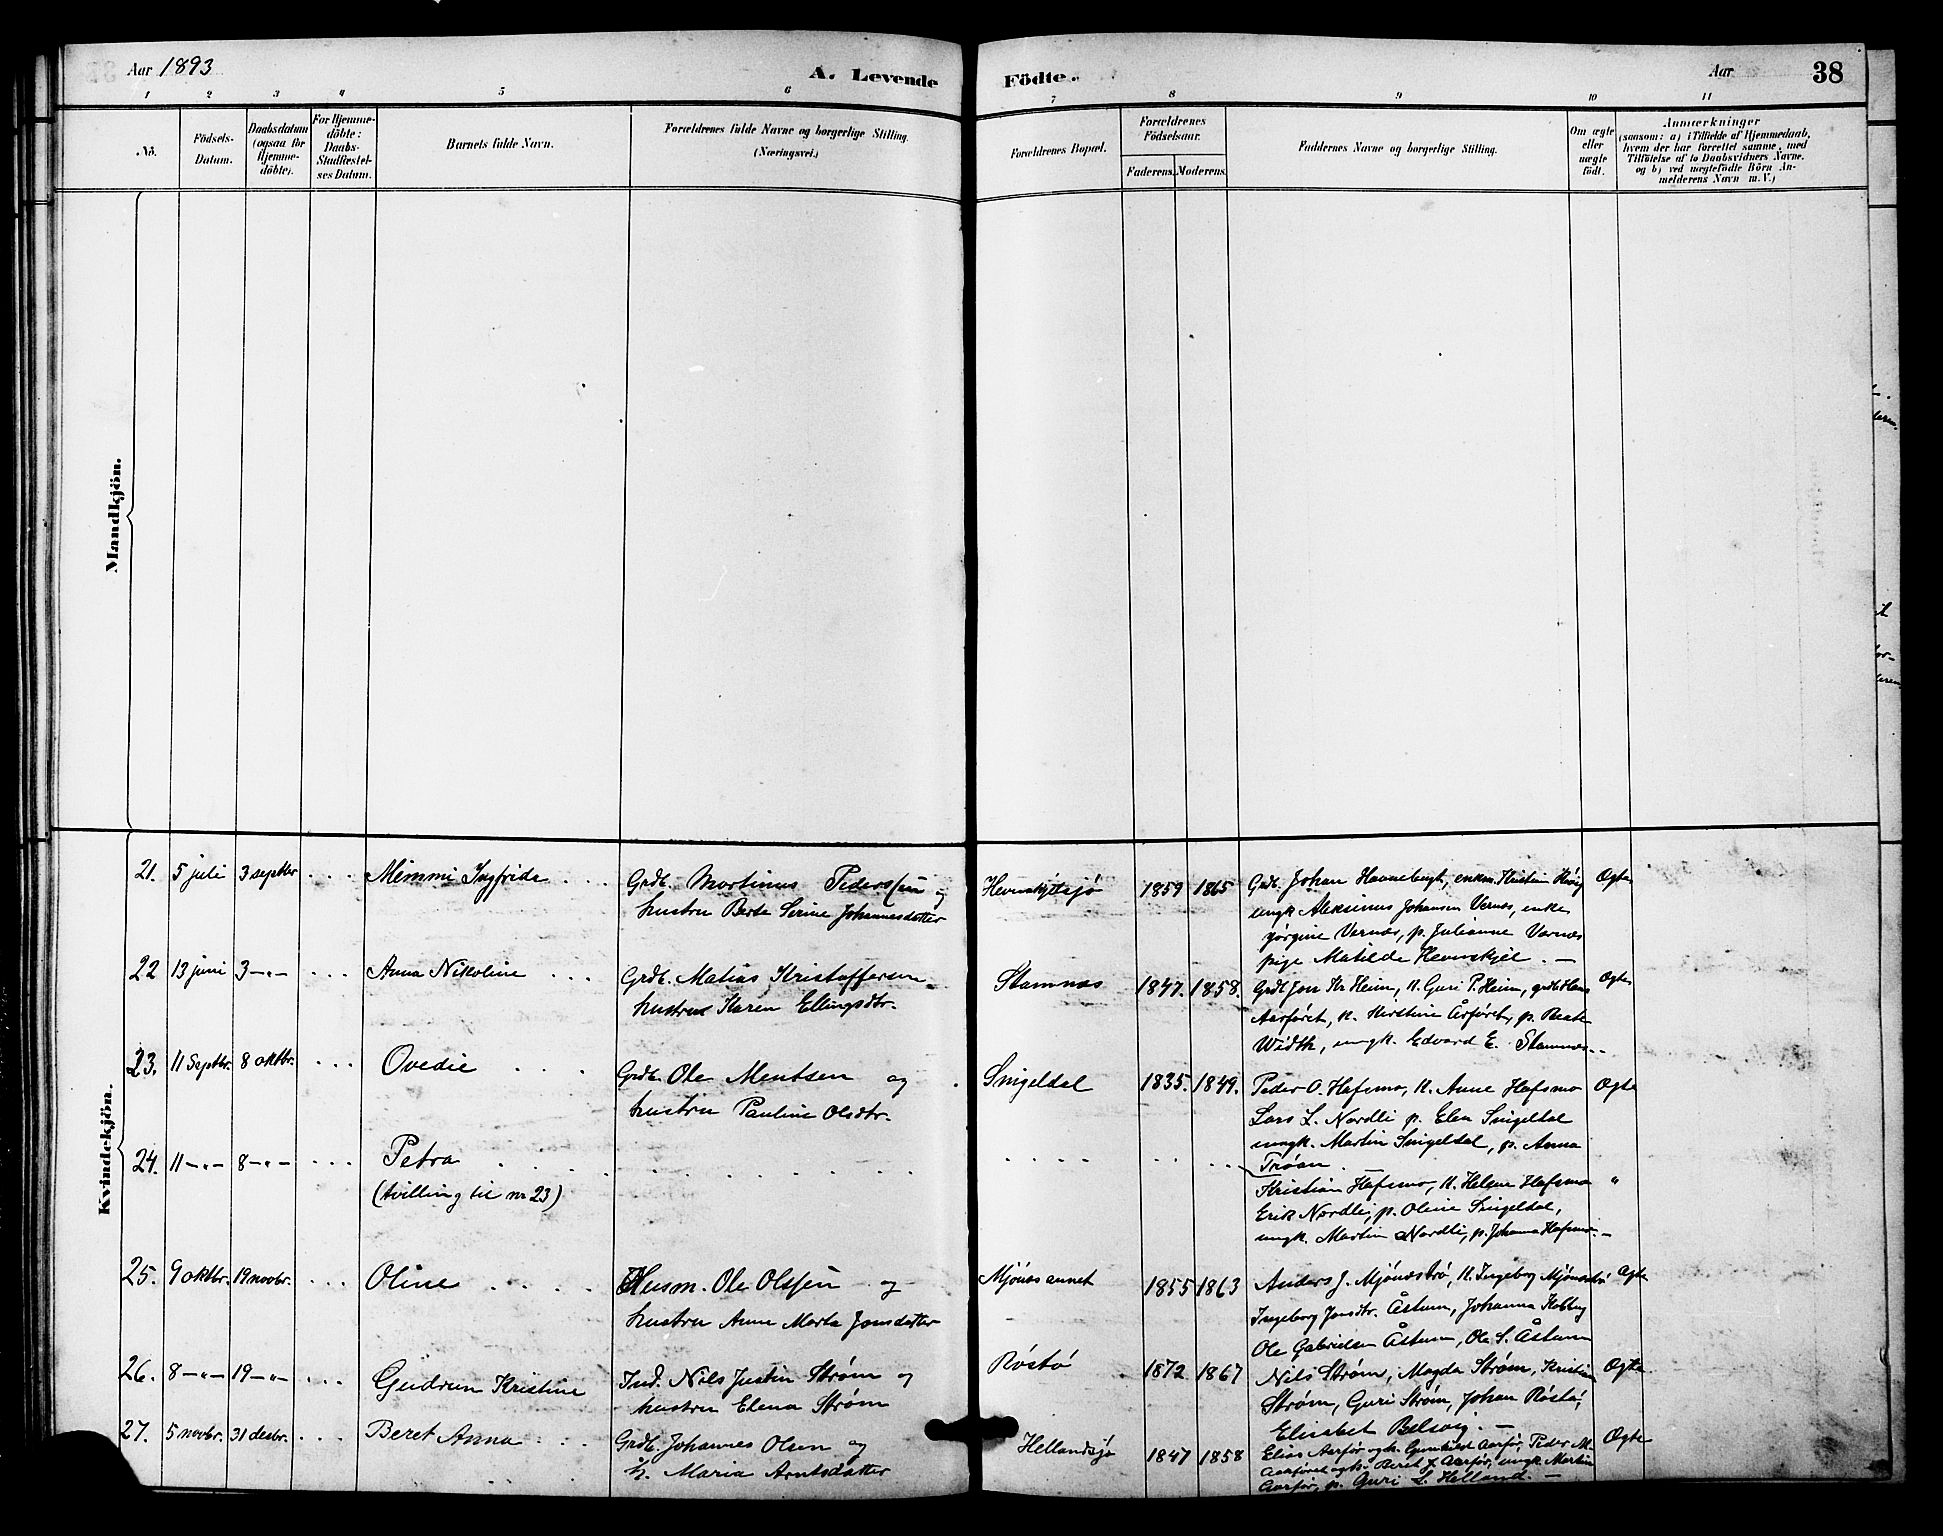 Aar 1893
A. Levende Födte.
Aar
38
1 2 3 4 5 6 7 8 9 10 11
No.
Födsels-
Datum.
Daabsdatum
(ogsaa for
Hjemme-
döbte).
For Hjemme-
döbte:
Daabs-
Stadfæstel-
ses Datum.
Barnets fulde Navn.
Forældrenes fulde Navne og borgerlige Stilling.
(Næringsvei.)
Forældrenes Bopæl.
Forældrenes
Födselsaar.
Faderens. Moderens.
Faddernes Navne og borgerlige Stilling.
Om ægte
eller
uægte
födt.
Anmærkninger
(saasom: a) i Tilfælde af Hjemmedaab,
hvem der har forrettet samme, med
Tilföielse af to Daabsvidners Navne.
og b) ved uægtefödte Börn An-
melderens Navn m. V.)
Mandkjön.
Kvindekjön.
21. 5 juli 3 septbr ... Mimmi Ingfride ... Grdb. Martinus Pederssen og
hustru Berte Serine Johannesdatter
Hevnskjelsjø 1859 1865 Grdb. Johan Havnebugt, enkm. Kristian
ungk Aleksinus Johansen Vernæs, enke
Jørgine Vernæs, p. Julianne Vernæs
pige Matilde Hevnskjel. —
Ægte
22 13 juni 3 -"- ... Anna Nikoline ... Grdb. Matias Kristoffersen
hustru Karen Ellingsdtr.
Stamnæs 1847. 1858. Grdb Jon Kr Heim, K. Guri P. Heim, grdb Hans
Aarføret, k. Kirstine Årføret, p. Beate
Width, ungk. Edvard E. Stamnæs..
Ægte
23. 11 Septbr. 8 oktbr. ... Ovedie .... Grdb. Ole Mentsen og
hustru Pauline Olsdtr.
Singeldal 1835. 1849. Peder O. Hafsmo, K. Anne Hafsmo
Lars L. Nordli p. Elen Singeldal
ungk. Martin Singeldal, p. Anna
Trøan.
Ægte
24. 11 -"- 8 -"- ... Petra ....
(tvilling til nr 23)
Kristian Hafsmo, K. Helene Hafsmo "
Erik Nordli, p. Oline Singeldal,
ungk. Martin Nordli, p. Johanna Hafsmo. —
25. 9 oktbr. 19 novbr. ... Oline .... Husm. Ole Olssen og
hustru Anne Marta Jonsdatter
Mjønæs annet 1855 1863 Anders J. Mjønæstrø, K. Ingeborg Mjønæstrø Ægte
Ingeborg Jonsdtr. Åstum, Johanna Kobbug
Ole Gabrielsen Åstum, Ole S. Åstum
26. 8 -"- 19 -"- ... Gudrun Kristine Ind. Nils Justin Strøm og
hustru Elena Strøm
Røstø 1872 1867 Nils Strøm, Magda Strøm, Kristian
Strøm, Guri Strøm, Johan Røstø,
Elisabet Belsvig. —
Ægte
27. 5 novbr. 31 desbr. ... Beret Anna ... Grdb. Johannes Olsen og
h. Maria Arntsdatter
Hellandsjø 1847 1858 Elias Aarfør og k. Gunhild Aarfør, Peder M.
Aarføret og k. Beret J. Aarfør, ungk Martin
Aarfør, p. Guri L. Helland. —
Ægte